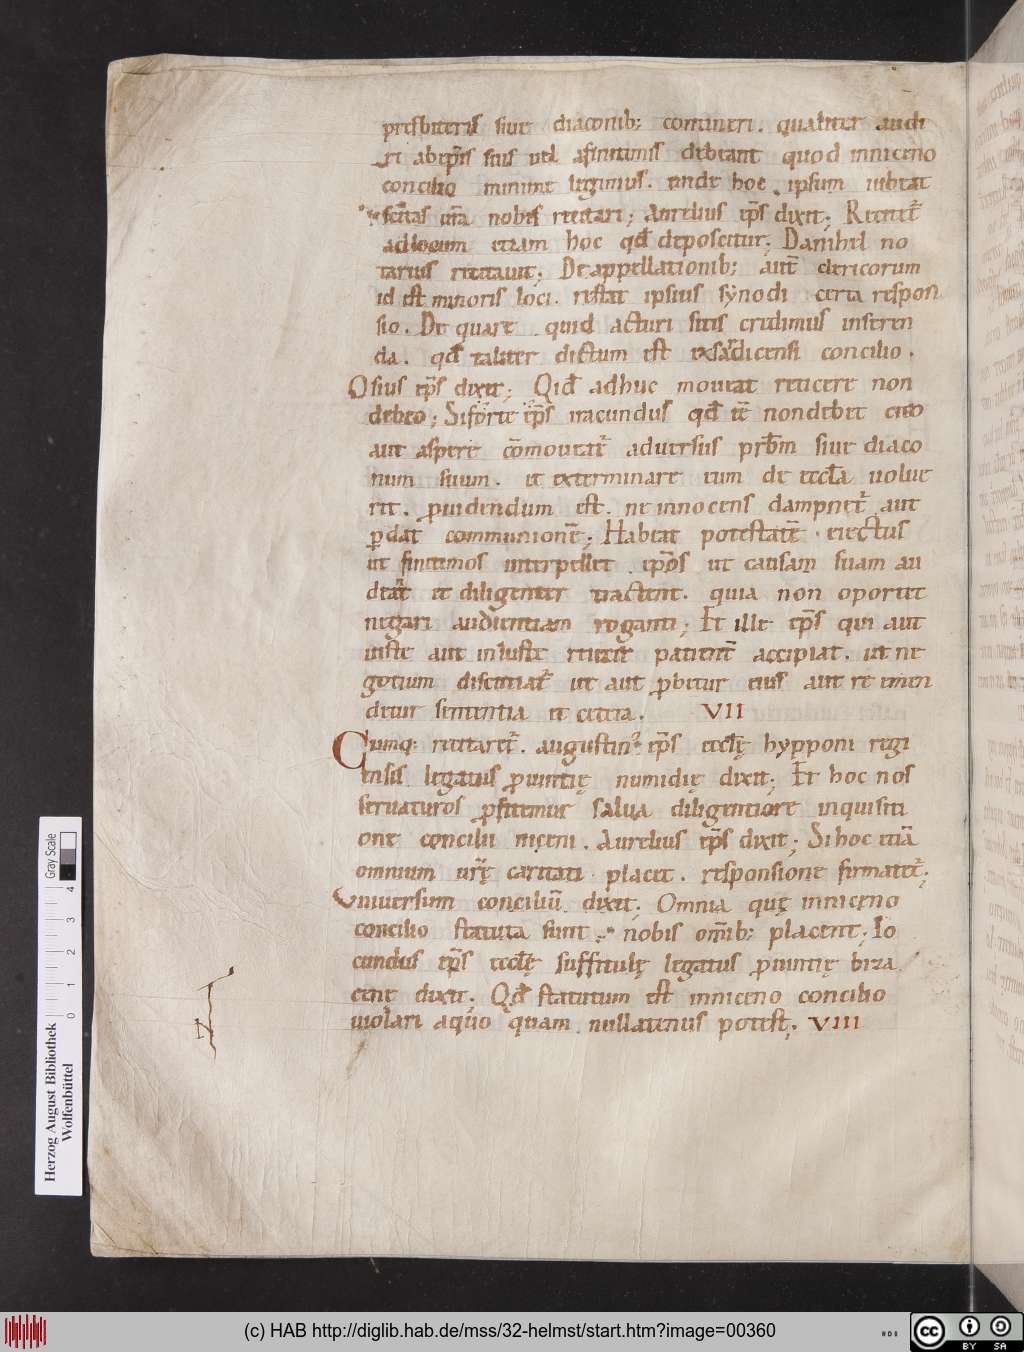 presbiteris siue diaconib; contineri. qualiter audi
ri ab ep̄is suis uel a finitimis debeant quod in niceno
concilio minime legimus. unde hoc ipsum iubeat
sc̄itas ur̄a nobis recitari; Aurelius ep̄s dixit; Recitet᷑
ad locum etiam hoc qd̄ deposcitur; Danihel no
tarius recitauit; De appellationib; aut̄ clericorum
id est minoris loci. restat ipsius synodi certa respon
sio. De qua re quid acturi sitis credimus inseren
da. qd̄ taliter dictum est ex sardicensi concilio.
Osius ep̄s dixit; Qid̄ adhuc moueat reticere non
debeo; Si forte ep̄s iracundus qd̄ eē non debet cito
aut aspere com̄oueat᷑ aduersus prb̄m siue diaco
num suum. et exterminare eum de eccl̄a uolue
rit. ꝓuidendum est. ne innocens dampnet᷑ aut
ꝑdat communionē; Habeat potestatē eiectus
ut finitimos interpellet ep̄os ut causam suam au
diat᷑ et diligenter tractent. quia non oportet
negari audientiam roganti; Et ille ep̄s qui aut
iuste aut iniuste reiecit patient̄ accipiat. ut ne
gotium discutiat᷑ ut aut ꝓbetur eius aut re emen
detur sententia et cetera. VII
Cumq; recitaret᷑. augustin᷒ ep̄s eccl̄ę hypponi regi
ensis legatus ꝓuintię numidię dixit; Et hoc nos
seruaturos ꝓfitemur salua diligentiore inquisiti
one concilii niceni. Aurelius ep̄s dixit; Si hoc etiā
omnium ur̄ę caritati placet. responsione firmatet᷑;
Vniuersum conciliū dixit; Omnia quę in niceno
concilio statuta sunt nobis om̄ib; placent; Io
cundus ep̄s eccl̄ę suffitulę legatus ꝓuintię biza
cenę dixit; Qd̄ statutum est in niceno concilio
uiolari a quo quam nullatenus potest; VIII
Gray Scale
0 1 2 3 4
Herzog August Bibliothek
Wolfenbüttel
(c) HAB http://diglib.hab.de/mss/32-helmst/start.htm?image=00360
cc BY SA